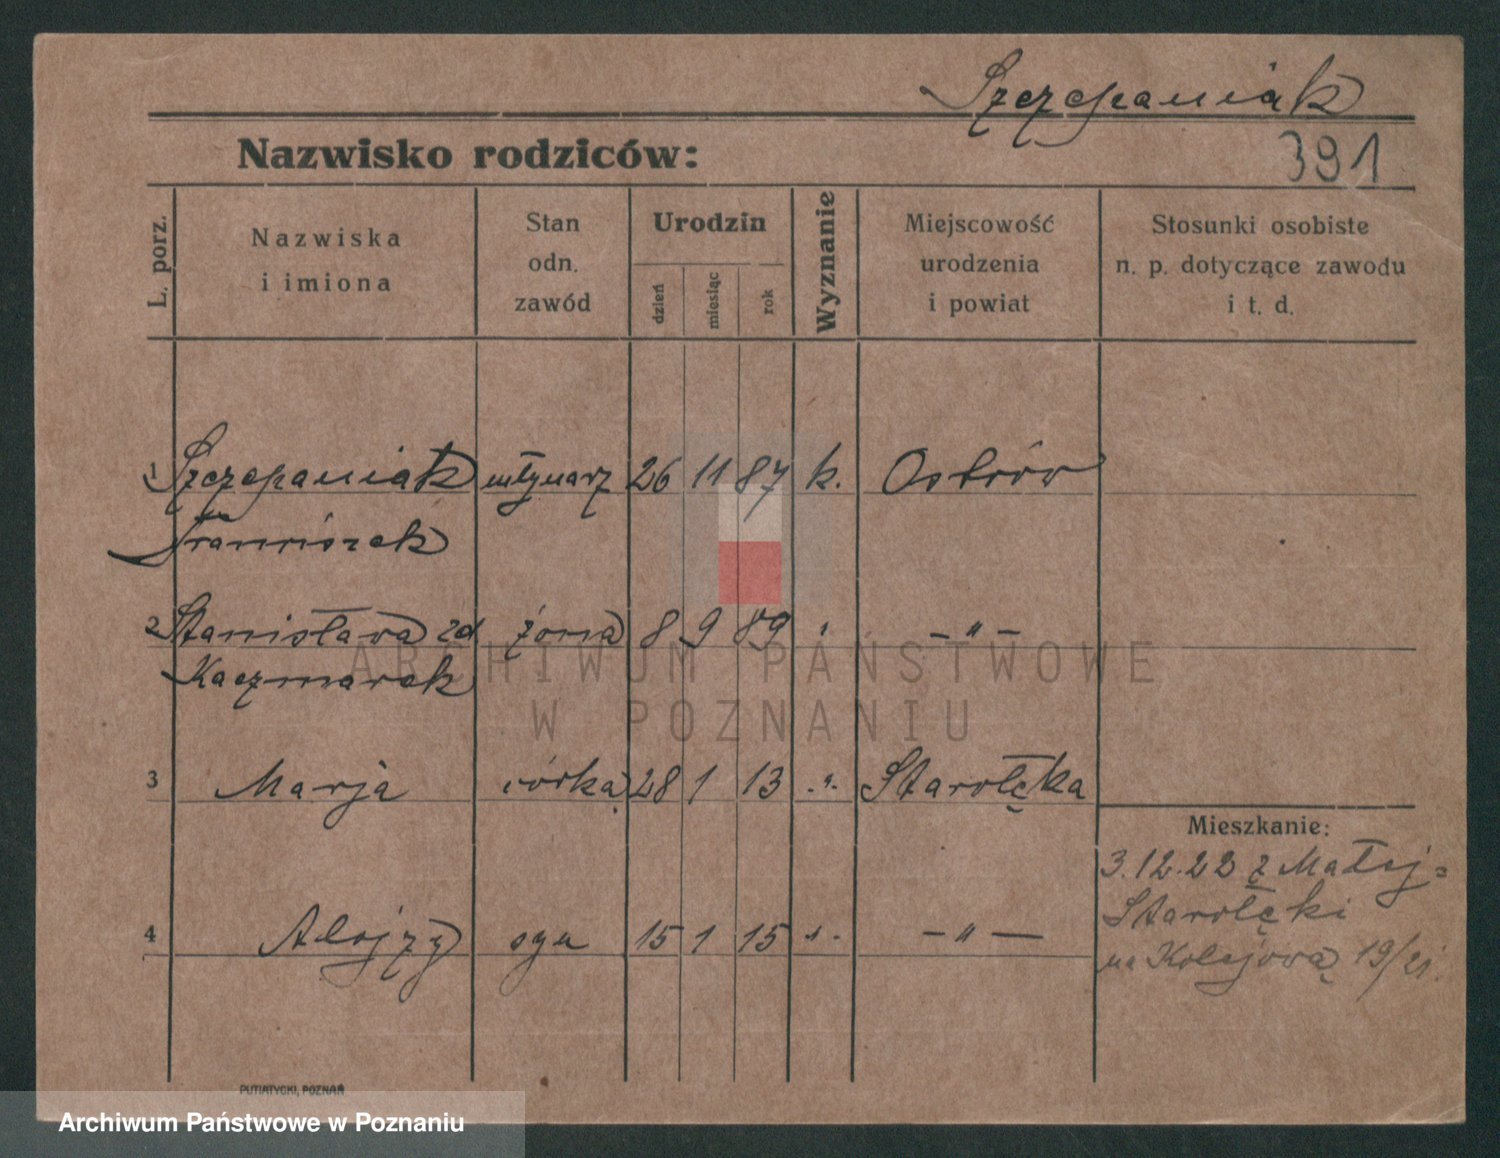 Szczepaniak
Nazwisko rodziców:
391
L. porz.
Nazwiska
i imiona
Stan
odn.
zawód
Urodzin
dzień
miesiąc
rok
Wyznanie
Miejscowość
urodzenia
i powiat
Stosunki osobiste
n. p. dotyczące zawodu
i t. d.
1 Szczepaniak młynarz 26 11 87 k. Ostrów
Franciszek
2 Stanisława zd żona 8 9 89 " — " —
Kaczmarek
3 Marja córka 28 1 13 . " . Starołęka
Mieszkanie:
3.12.22 z Małej-
Starołęki
na Kolejową 19/21.
4 Alojzy syn 15 1 15 . " . — " —
ARCHIWUM PAŃSTWOWE
W POZNANIU
PUTIATYCKI, POZNAŃ
Archiwum Państwowe w Poznaniu